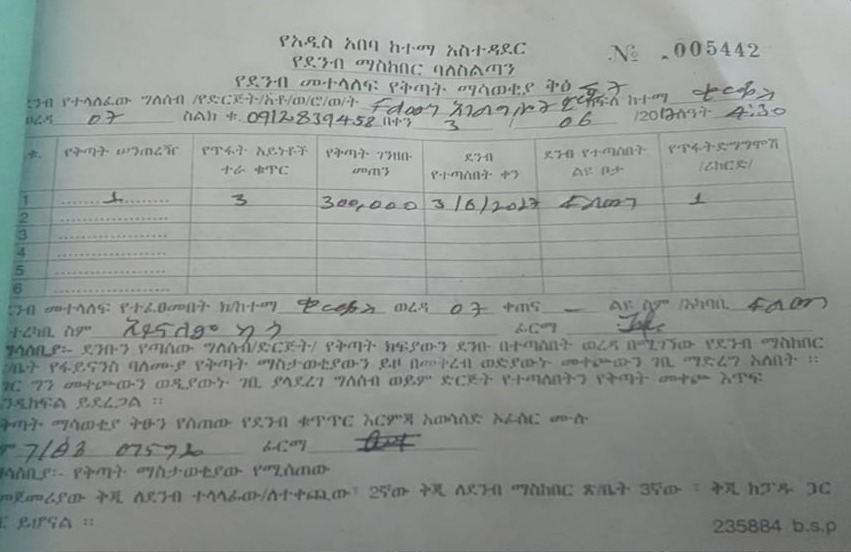 የአዲስ አበባ ከተማ አስተዳደር
№ 005442
የደንብ ማስከበር ባለስልጣን
የደንብ መተላለፍ የቅጣት ማሳወቂያ ቅፅ
ደንብ የተላለፈው ግለሰብ /የድርጅት/አቶ/ወ/ሮ/ወ/ት ክ/ከተማ ቂርቆስ
ወረዳ 07 ስልክ ቁ. 0912839458 በቀን 3 / 06 /2017 ሰዓት 4:30
ቁ. የቅጣት ሠንጠረዥ የጥፋት አይነቶች ተራ ቁጥር የቅጣት ገንዘቡ መጠን ደንብ የተጣሰበት ቀን ደንብ የተጣሰበት ልዩ ቦታ የጥፋት ድግግሞሽ /ሪከርድ/
1 1 3 300,000 3/6/2017 ፍላመንጎ 1
2
3
4
5
6
ደንብ መተላለፍ የተፈፀመበት ክ/ከተማ ቂርቆስ ወረዳ 07 ቀጠና — ልዩ ስም /አካባቢ
ተረካቢ ስም ፊርማ
ማሳሰቢያ፡- ደንቡን የጣሰው ግለሰብ/ድርጅት/ የቅጣት ክፍያውን ደንቡ በተጣሰበት ወረዳ በሚገኘው የደንብ ማስከበር
ፅ/ቤት የፋይናንስ ባለሙያ የቅጣት ማስታወቂያውን ይዞ በመቅረብ ወድያውኑ መቀጮውን ገቢ ማድረግ አለበት ።
ነገር ግን መቀጮውን ወዲያውኑ ገቢ ያላደረገ ግለሰብ ወይም ድርጅት የተጣለበትን የቅጣት መቀጮ እጥፍ
እንዲከፍል ይደረጋል ።
የቅጣት ማሳወቂያ ቅፁን የሰጠው የደንብ ቁጥጥር እርምጃ አወሳሰድ ኦፊሰር ሙሉ
ስም ፊርማ
ማሳሰቢያ፡- የቅጣት ማስታወቂያው የሚሰጠው
የመጀመሪያው ቅጂ ለደንብ ተላላፊው/ለተቀጪው፣ 2ኛው ቅጂ ለደንብ ማስከበር ጽ/ቤት 3ኛው ፡ ቅጂ ከፓዱ ጋር
ይሆናል ።
235884 b.s.p